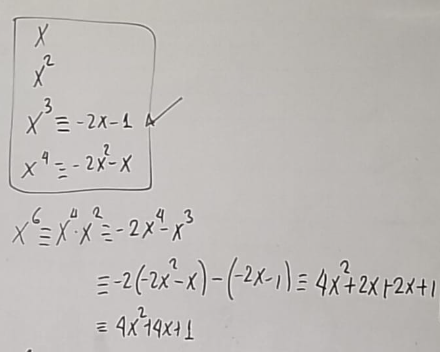 x
x²
x³ ≡ -2x-1 ✓
x⁴ ≡ -2x²-x
x⁶ ≡ x⁴·x² ≡ -2x⁴-x³
≡ -2(-2x²-x)-(-2x-1) ≡ 4x²+2x+2x+1
≡ 4x²+4x+1